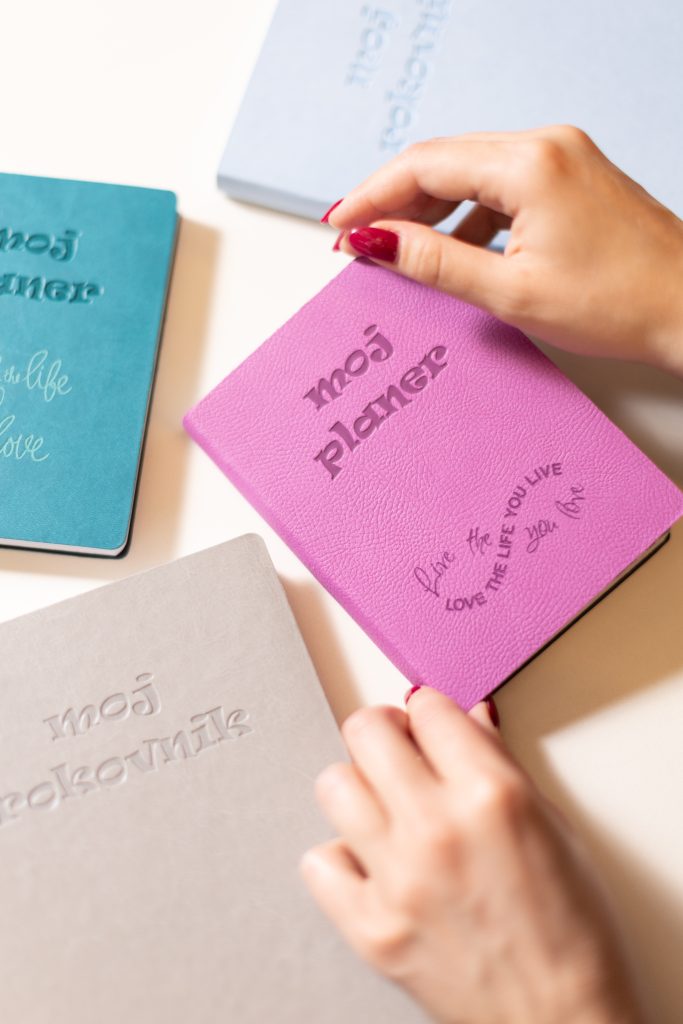 moj
rokovni
moj
laner
the life
love
moj
planer
Live the
LOVE THE LIFE YOU LIVE
you love
moj
rokovnik